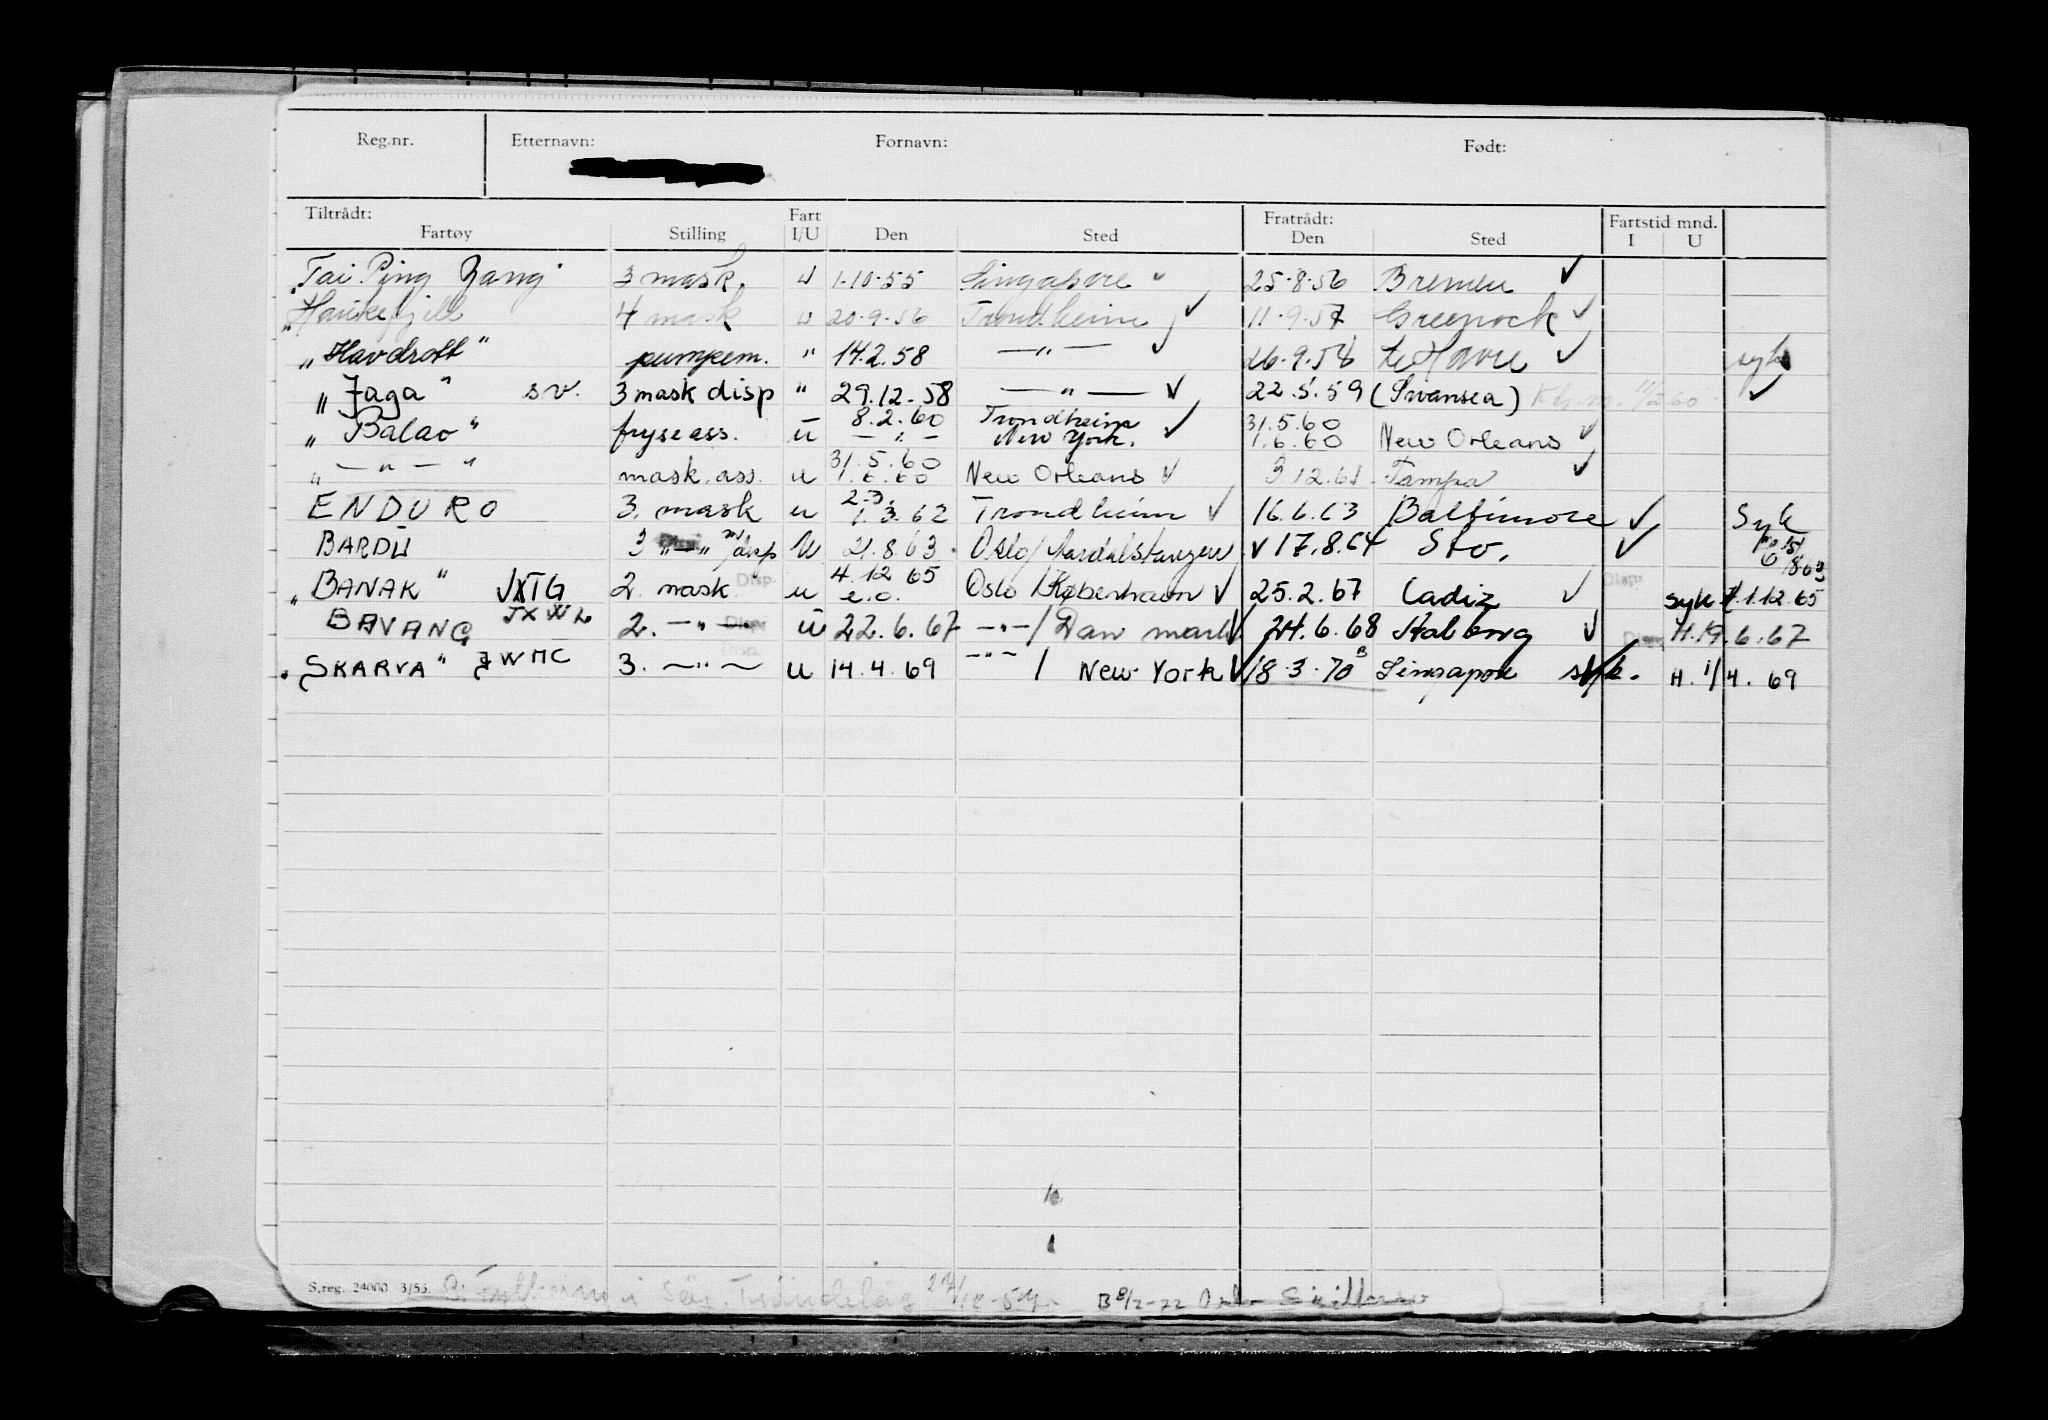 Reg.nr. Etternavn: Fornavn: Født:
Tiltrådt: Fart Fratrådt: Fartstid mnd.
Fartøy Stilling I/U Den Sted Den Sted I U
Tai Ping Yang" 3 mask. u 1.10.55 Singapore 25.8.56 Bremen ✓
"Haukefjell 4 mask u 20.9.56 Trondheim ✓ 11.9.57 Greenock ✓
"Havdrott" pumpem. " 14.2.58 —"— ✓ 26.9.58 Le Havre ✓ syk
"Jaga" sv. 3 mask disp " 29.12.58 —"— ✓ 22.5.59 (Swansea) 11/2 60 ✓
8.2.60 Trondheim 31.5.60
"Balao" fryseass. u —"— New York. ✓ 1.6.60 New Orleans ✓
31.5.60
"—"—" mask.ass. u 1.6.60 New Orleans ✓ 3 12.61 Tampa ✓
2.3.
ENDURO 3. mask u 1.3.62 Trondheim ✓ 16.6.63 Baltimore ✓ Syk
BARDU 3 "—" m/disp U 21.8.63. Oslo/Aardalstangen ✓ 17.8.64 Sto, ✓ 15/8 63
4.12 65
"BANAK" JXTG 2. mask Disp. u e.o. Oslo/København ✓ 25.2.67 Cadiz ✓ Disp. syk 1.12.65
BAVANG JXWL 2. —"— Disp. u 22.6.67 —"—/Danmark ✓ 24.6.68 Aalborg ✓ Disp. H.19.6.67
"SKARVA" JWMC 3. —"— Disp. u 14.4.69 —"—/ New York ✓ 18.3.70 Singapore syk. H. 1/4. 69
S.reg. 24000 3/53. i Sør-Trøndelag B 8/2-72